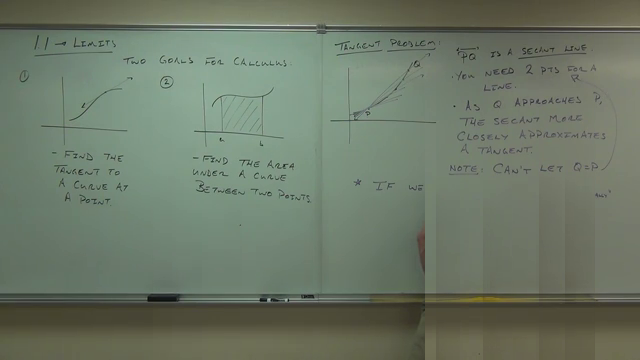 1.1 → LIMITS
TWO GOALS FOR CALCULUS.
①
②
a
b
- FIND THE
TANGENT TO
A CURVE AT
A POINT.
- FIND THE AREA
UNDER A CURVE
BETWEEN TWO POINTS.
TANGENT PROBLEM:
Q
P
* IF WE
PQ IS A SECANT LINE.
• YOU NEED 2 PTS FOR A
LINE.
• AS Q APPROACHES P,
THE SECANT MORE
CLOSELY APPROXIMATES
A TANGENT.
NOTE: CAN'T LET Q=P